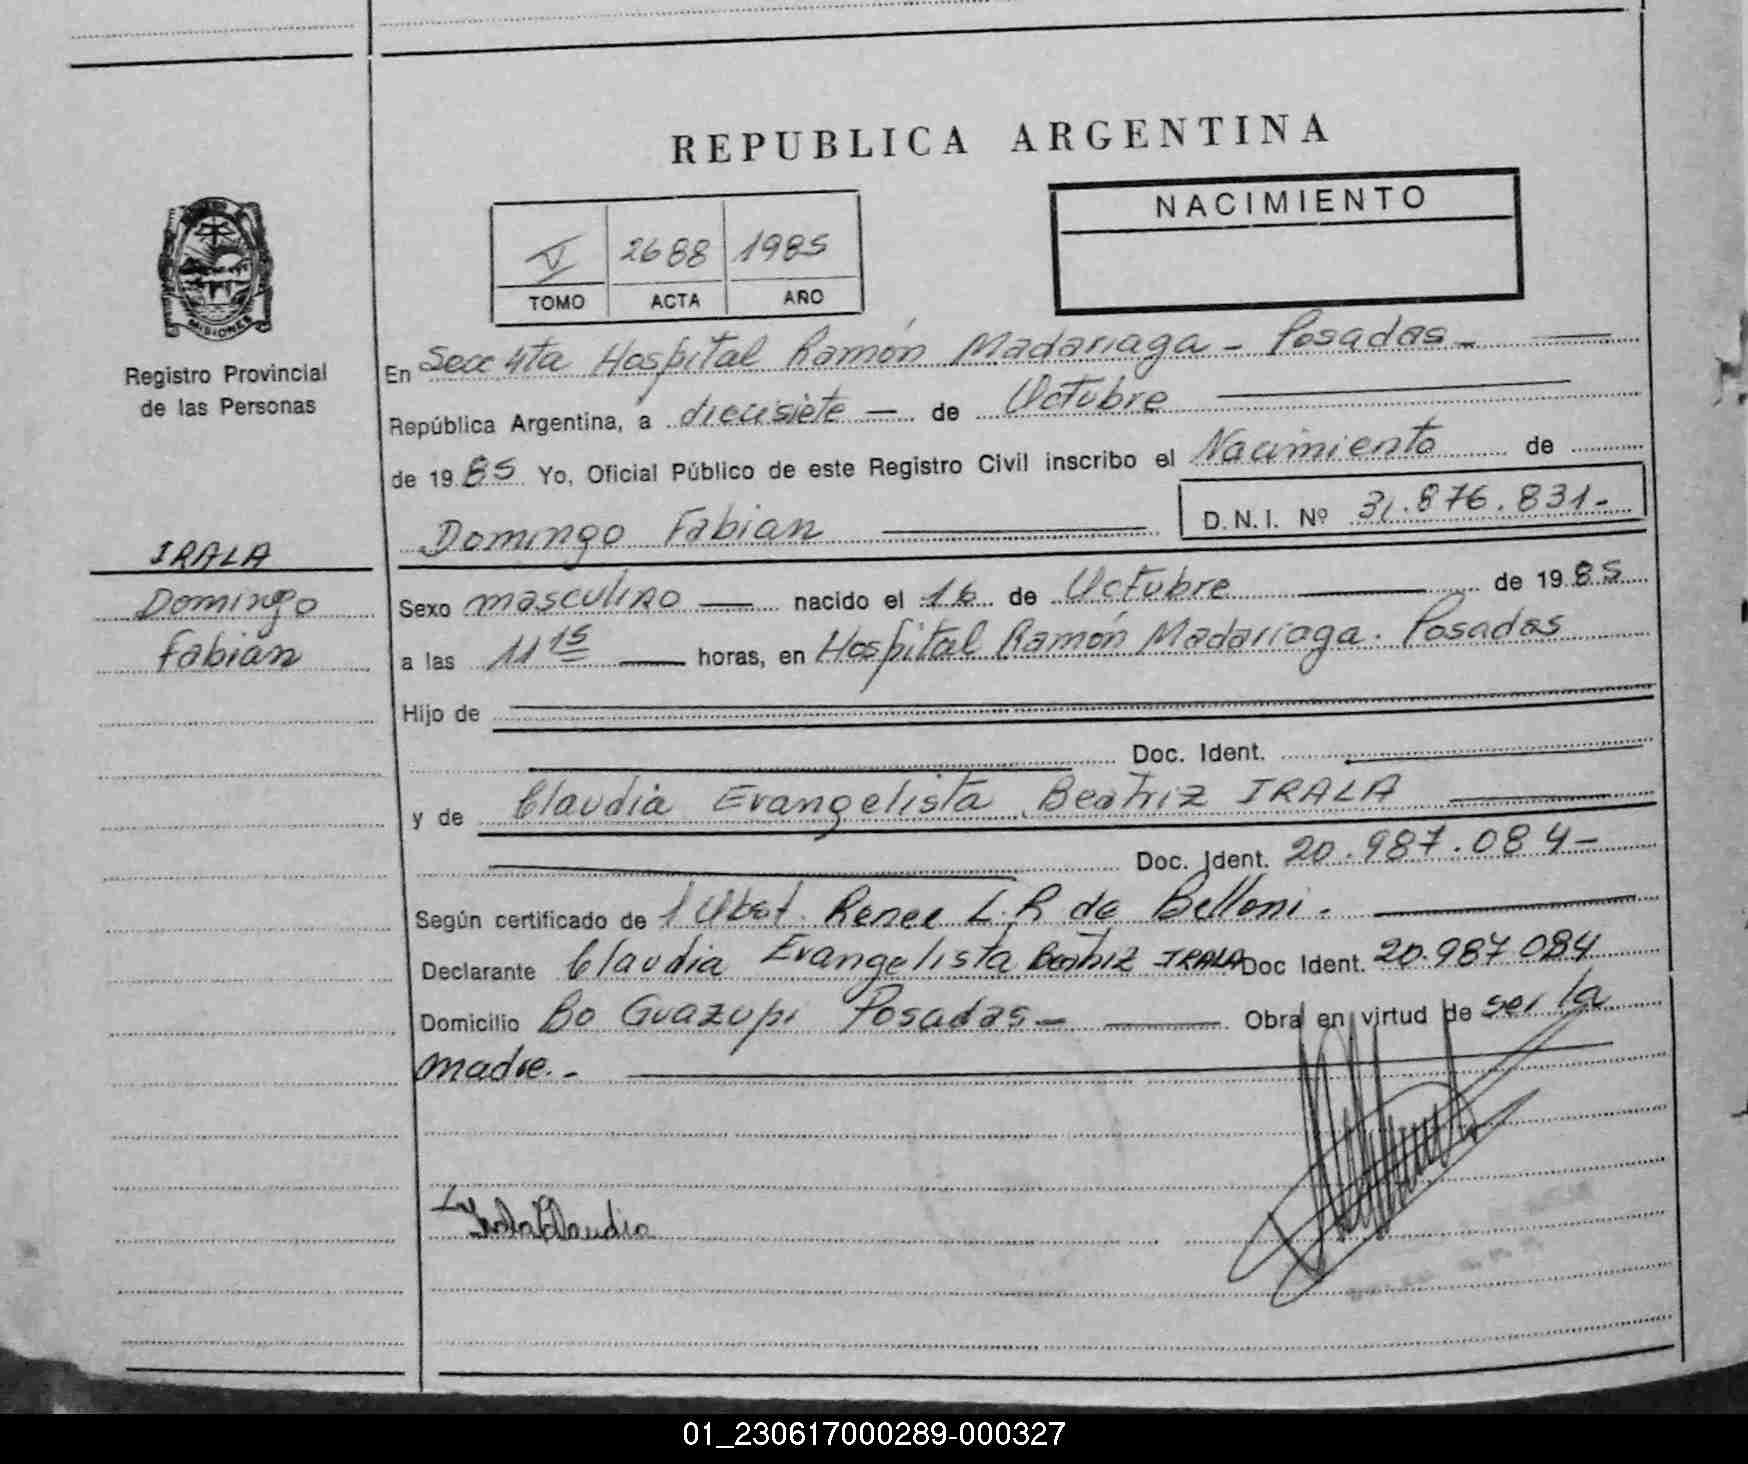 REPUBLICA ARGENTINA
NACIMIENTO
V 2688 1985
TOMO ACTA AÑO
MISIONES
Registro Provincial
de las Personas
IRALA
Domingo
Fabian
En Secc 4ta Hospital Ramón Madariaga - Posadas -
República Argentina, a diecisiete — de Octubre
de 1985 Yo, Oficial Público de este Registro Civil inscribo el Nacimiento de
Domingo Fabian D.N.I. Nº 31.876.831-
Sexo masculino — nacido el 16 de Octubre — de 1985
a las 11 15 — horas, en Hospital Ramón Madariaga. Posadas
Hijo de
Doc. Ident.
y de Claudia Evangelista Beatriz IRALA —
Doc. Ident. 20.987.084-
Según certificado de Obst. Renee L. R de Belloni. —
Declarante Claudia Evangelista Beatriz IRALA Doc Ident. 20.987.084
Domicilio Bo Guazupi Posadas - — Obra en virtud de ser la
madre. -
Irala Claudia
01_230617000289-000327